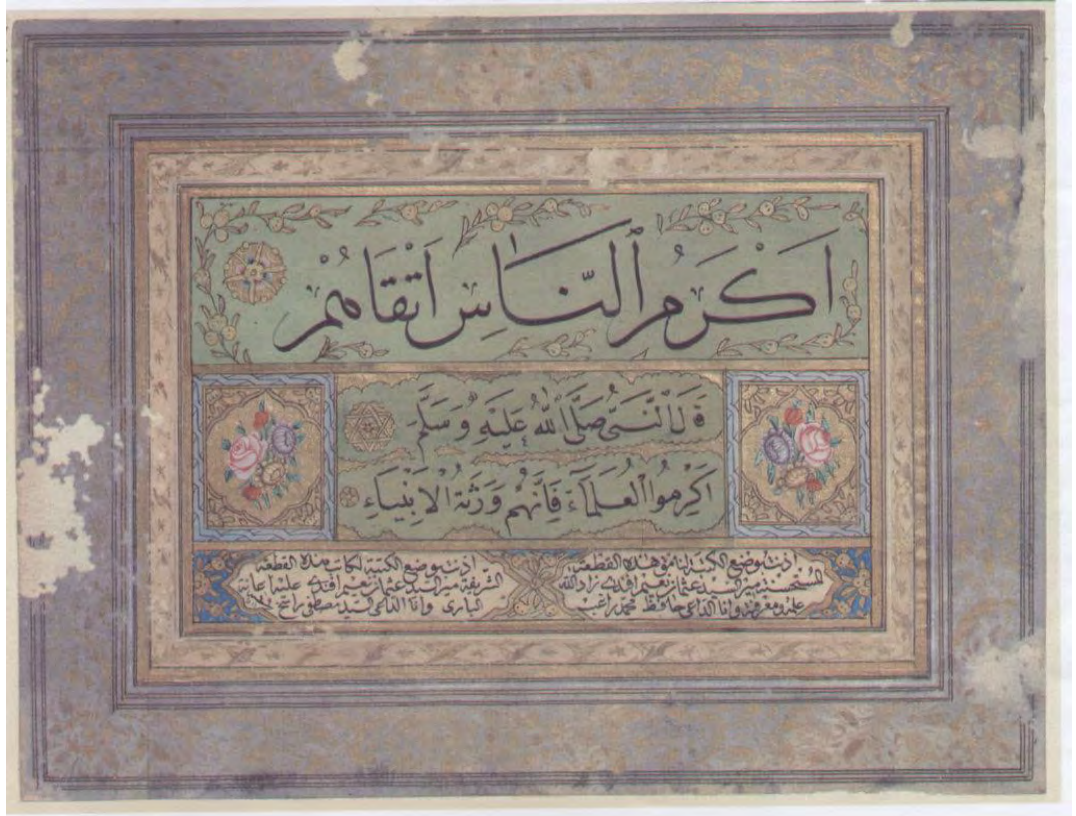 اَكْرَمُ ٱلنَّاسِ اَتْقَاهُمْ
قَالَ النَّبِىُّ صَلَّى اللّٰهُ عَلَيْهِ وَسَلَّمَ
اَكْرِمُوا الْعُلَمَآءَ فَاِنَّهُمْ وَرَثَةُ الْاَنْبِيَاءِ
اذنت بوضع الكتبة لنامق هذه القطعة
السيد عثمان نعيم افندى زاد الله
علمه ومعرفته وانا الداعى حافظ محمد راغب
اذنت بوضع الكتبة لكاتب هذه القطعة
الشريفة السيد عثمان نعيم افندى
البارى وانا الداعى السيد مصطفى